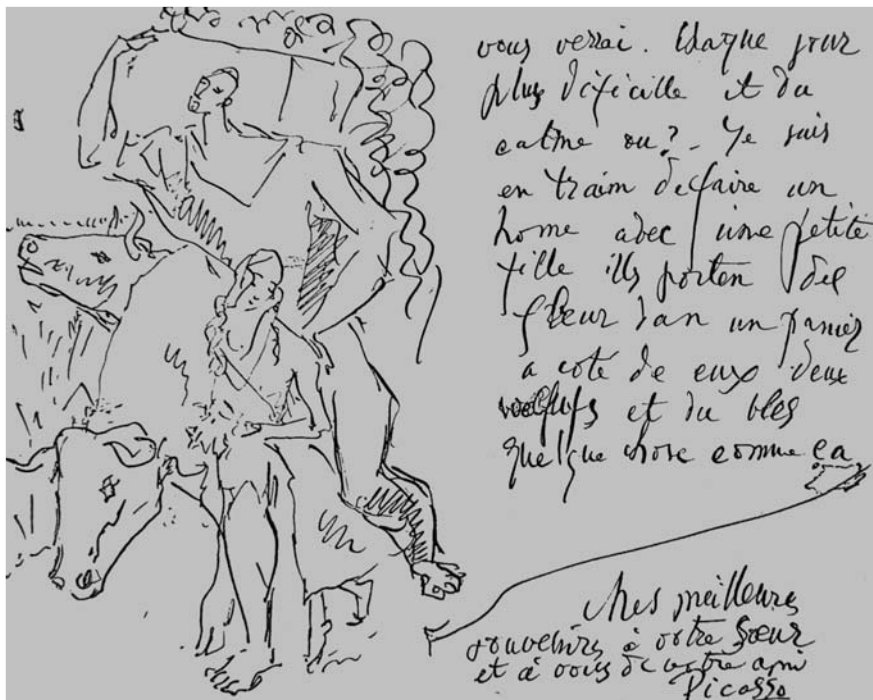 vous verrai. Chaque jour
plus dificille et du
calme ou? - Je suis
en traim de faire un
home avec une petite
fille ills porten des
fleur dan un panier
a coté de eux deux
et du bles
quelque chose comme ca
Mes meilleurs
souvenirs à votre sœur
et à vous de votre ami
Picasso